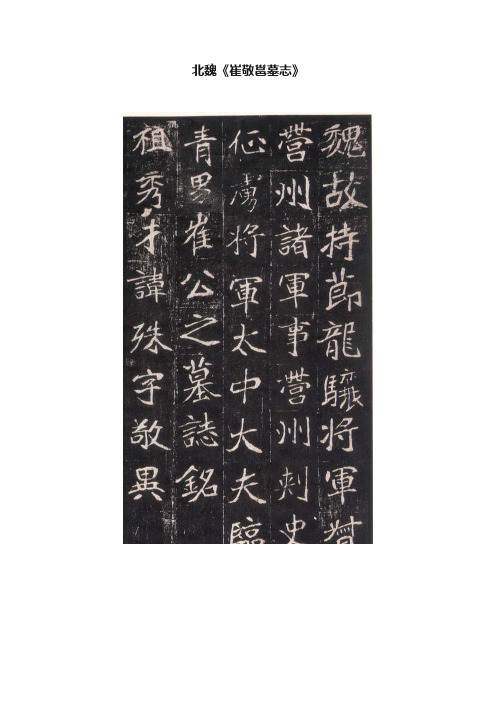 北魏《崔敬邕墓志》
魏故持節龍驤将軍督
營州諸軍事營州刾史
征虜将軍太中大夫臨
青男崔公之墓誌銘
祖秀才諱殊字敬異